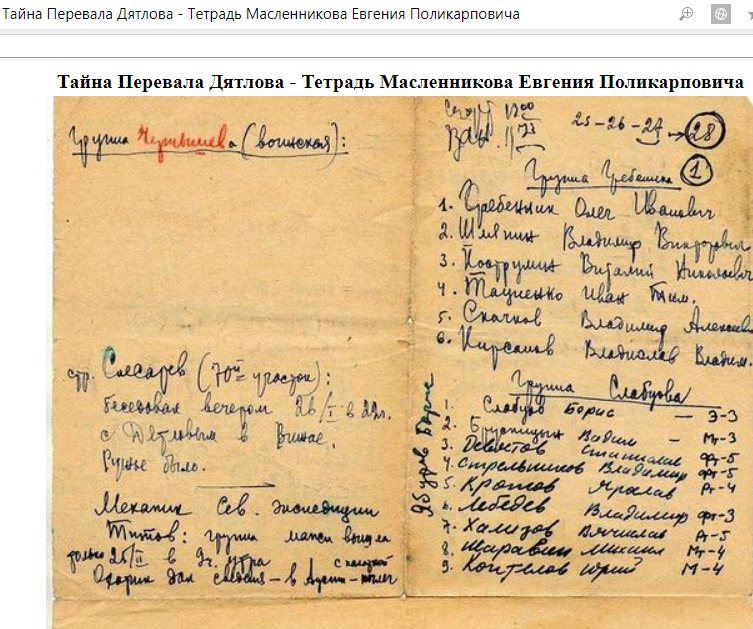 Тайна Перевала Дятлова - Тетрадь Масленникова Евгения Поликарповича
Тайна Перевала Дятлова - Тетрадь Масленникова Евгения Поликарповича
Группа Чернышева (воинская):
стр. Слесарев (70й участок):
беседовал вечером 26/I в 22ч.
с Дятловым в Вижае.
Ружье было.
Механик Сев. экспедиции
Титов: группа манси вышла
только 25/II в 9ч. утра
Озорин дал сведения - в
25-26-27 → 28
Группа Гребенника 1
1. Гребенник Олег Иванович
2. Шляпин Владимир Викторович
3. Постружин Виталий Николаевич
4. Тациенко Иван
5. Скачков Владимир Алексеевич
6. Кирсанов Владислав Владим.
Группа Слабцова
1. Слабцов Борис - Э-3
2. Брусницын Вадим - Мт-3
3. Девятов Станислав Фт-5
4. Стрельников Владимир Фт-5
5. Кротов Ярослав Рт-4
6. Лебедев Владимир Фт-3
7. Хализов Вячеслав Рт-5
8. Шаравин Михаил Мт-4
9. Коптелов Юрий М-4